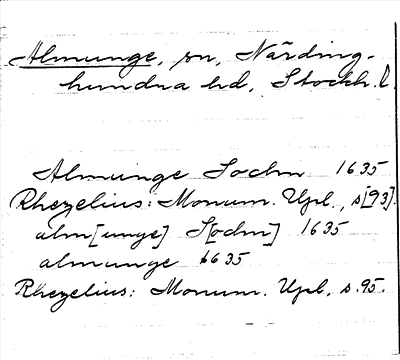 Almunge, sn, Närding-
hundra hd, Stockh. l.
Almunge Sochn 1635
Rhezelius: Monum. Upl., s[93].
alm[unge] S[ochn] 1635
almunge 1635
Rhezelius: Monum. Upl, s.95.